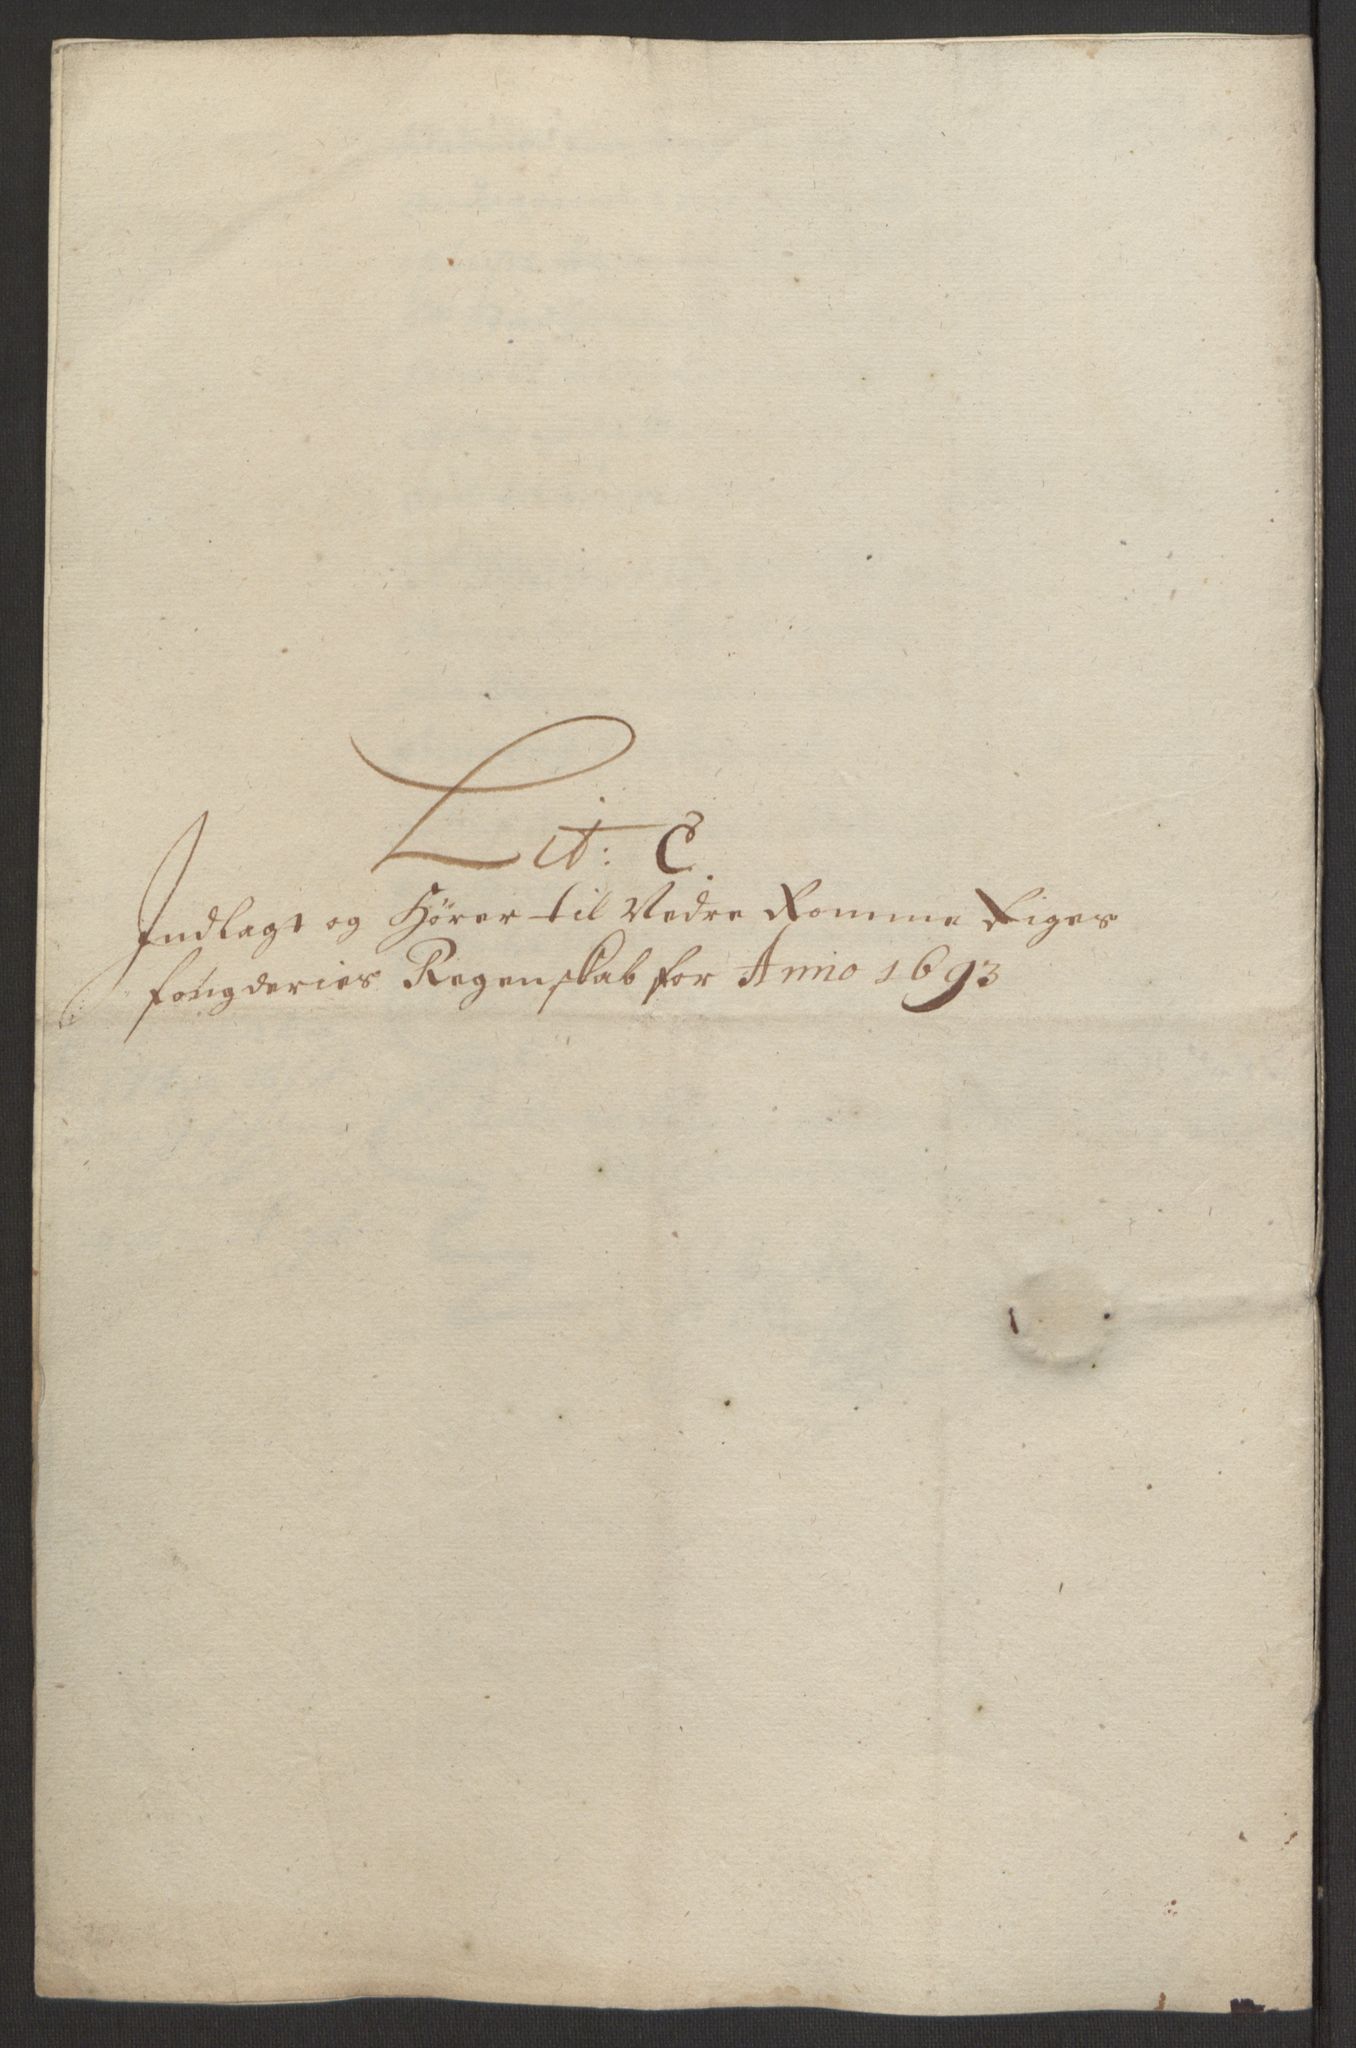 Lit: C.
Indlagt og Hører til Nedre Romme Riges
fougderies Regenskab for Anno 1693